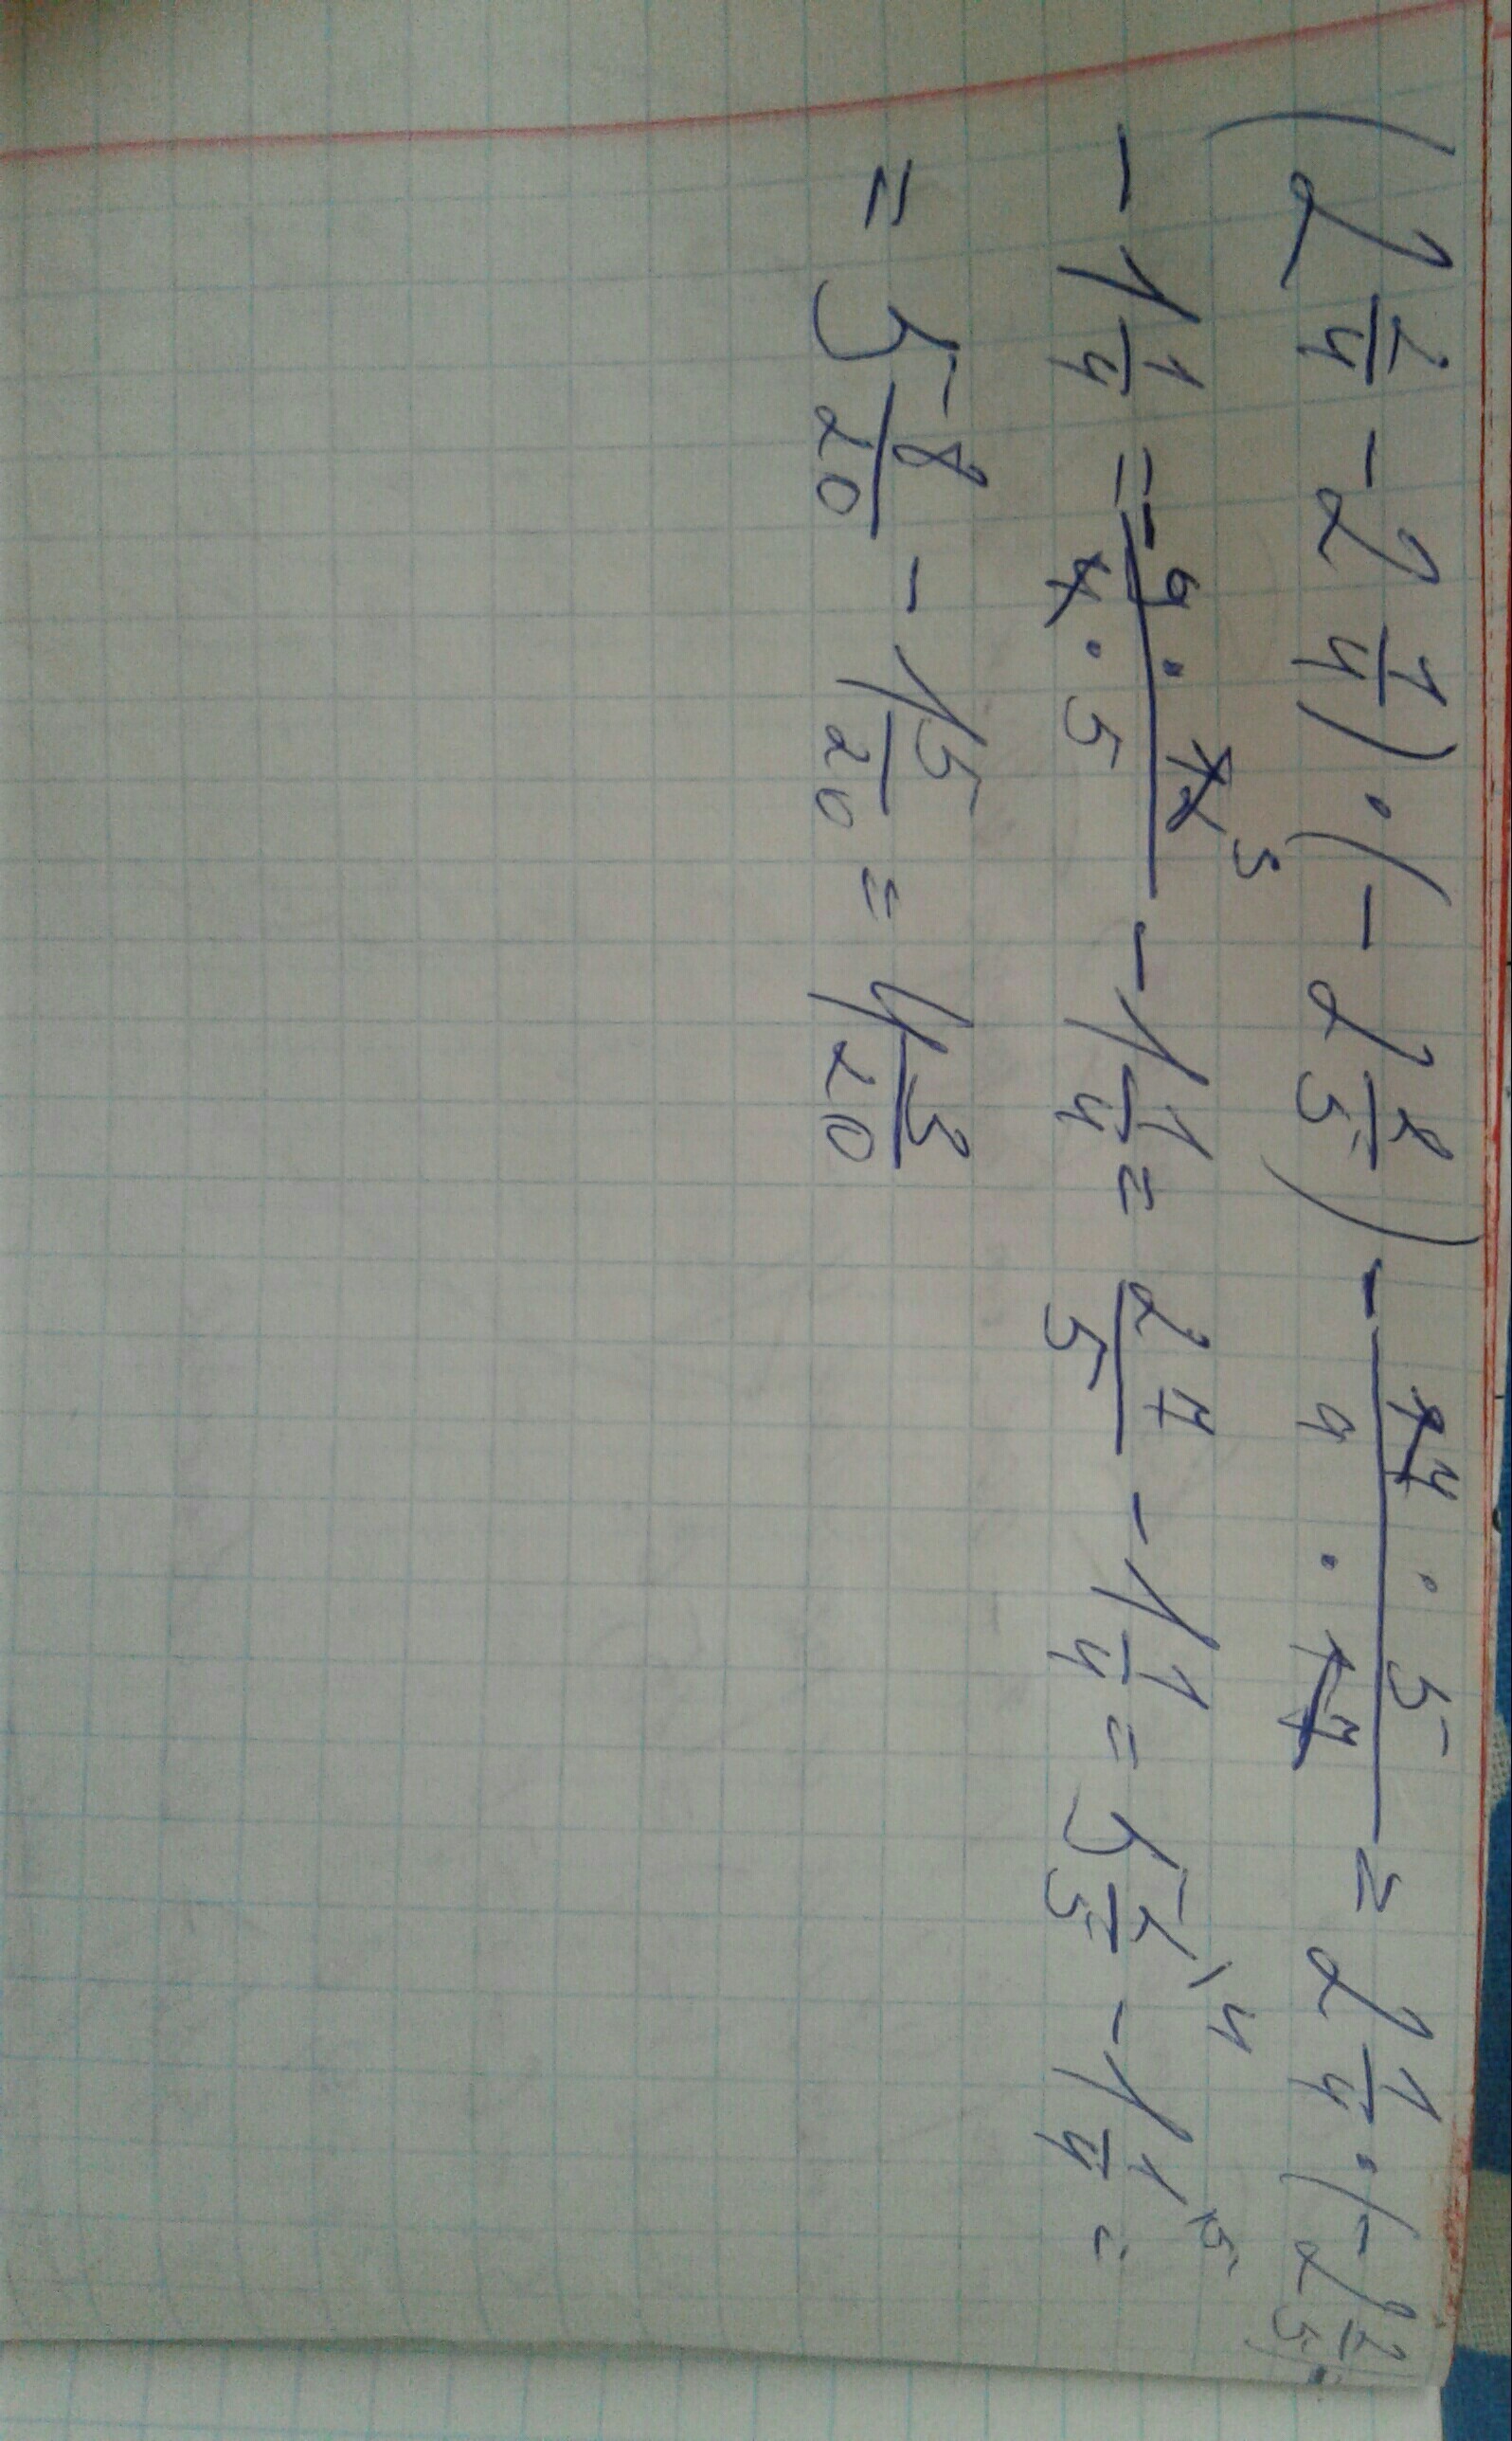 (2 2/4 - 2 1/4) · (- 2 2/5) - 17 · 5 / 4 · 17 = 2 1/4 · (- 2 2/5) -
- 1 1/4 = - 9 · 12 3 / 4 · 5 - 1 1/4 = 27/5 - 1 1/4 = 5 2/5 \4 - 1 1/4 \5 =
= 5 8/20 - 1 5/20 = 4 3/20